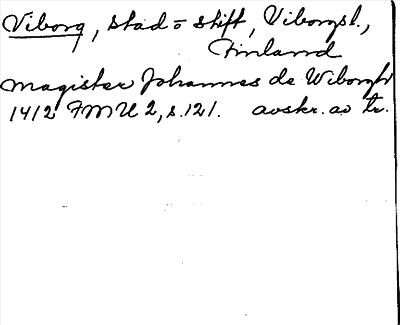 Viborg, stad o stift, Viborgsl.,
Finland
magister Johannes de Wiborgh
1412 FMU 2, s.121. avskr. av tr.